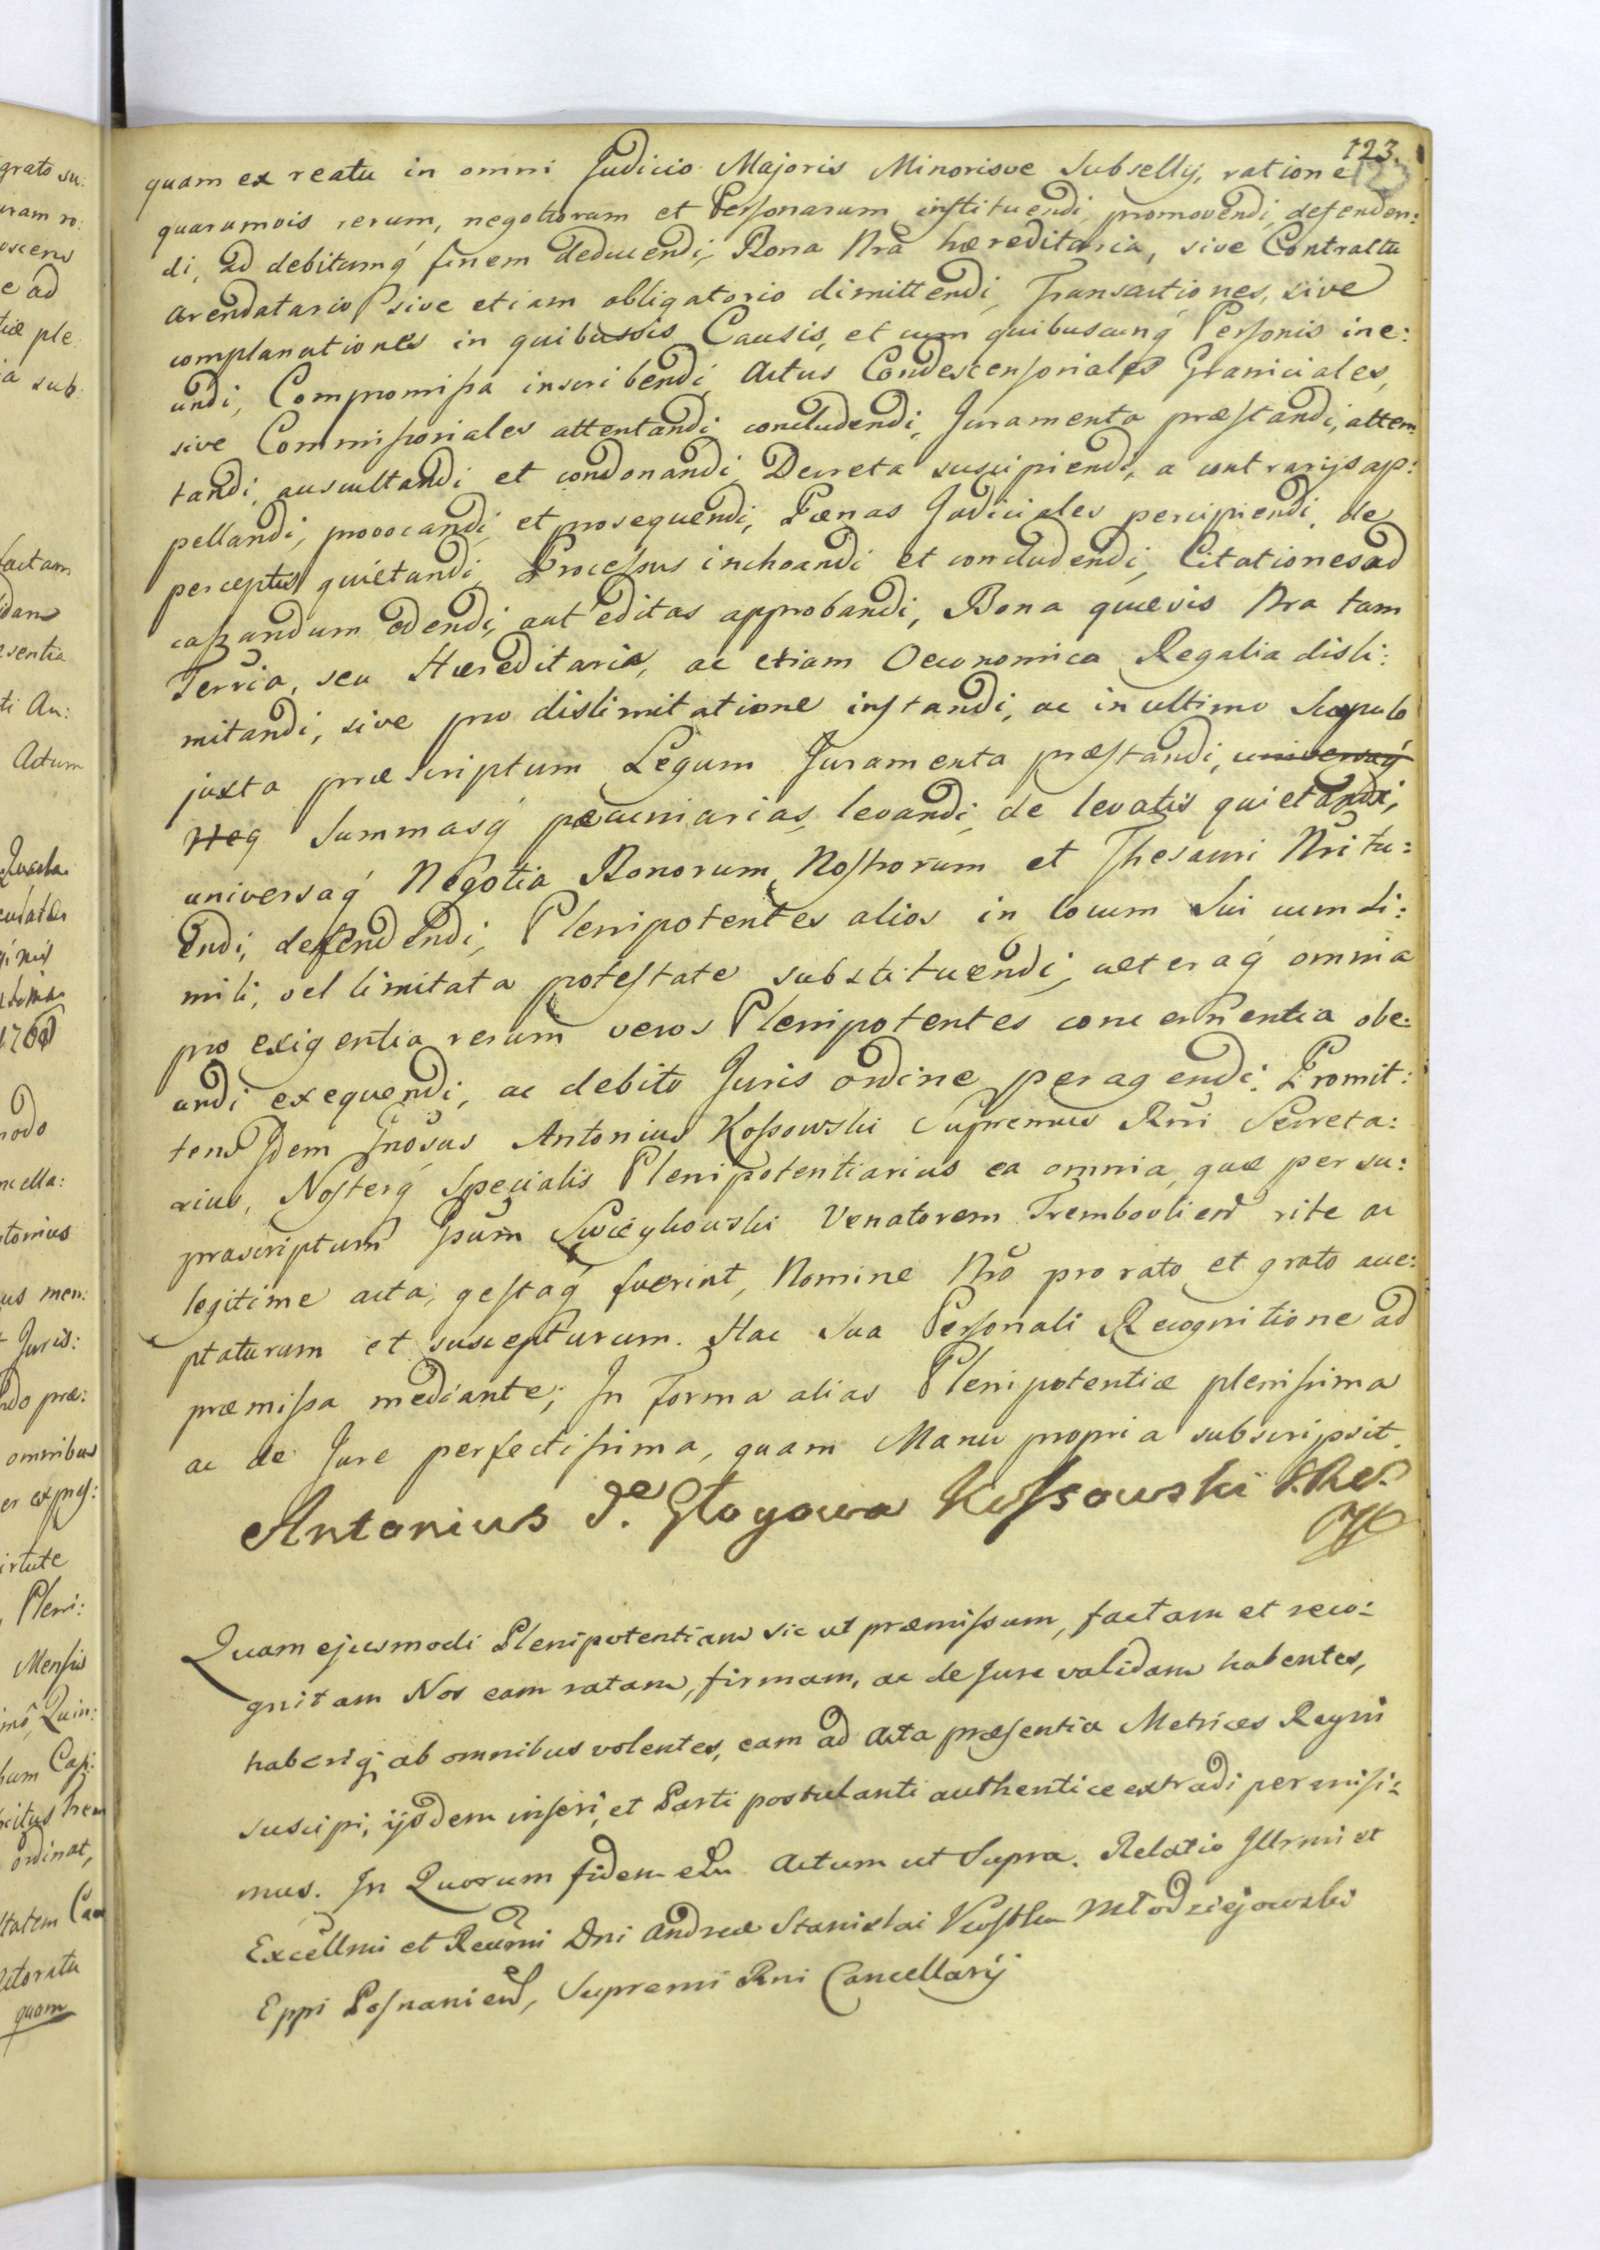 123.
quam ex reatu in omni Judicio Majoris Minorisve Subsellÿ, ratione
quarumvis rerum, negotiorum et Personarum instituendi, promovendi, defenden:
di, ad debitumq́ finem deducendi, Bona Nrã hæreditaria, sive Contractu
arendatario sive etiam obligatorio dimittendi, Transactiones, sive
complanationes in quibusvis Causis, et cum quibuscunq́ Personis ine:
undi, Compromissa inscribendi, Actus Condescensoriales Graniciales,
sive Commissoriales attentandi concludendi, Juramenta præstandi, atten:
tandi, auscultandi et condonandi, Decreta suscipiendi, a contrarijs ap:
pellandi, provocandi, et prosequendi, Pœnas Judiciales percipiendi, de
perceptis quietandi, Processus inchoandi et concludendi, Citationes ad
cassandum edendi, aut editas approbandi, Bona quævis Nra tam
Terria, seu Hæreditaria, ac etiam Oeconomica Regalia disli:
mitandi, sive pro dislimitatione instandi, ac in ultimo Scopulo
juxta præscriptum Legum Juramenta præstandi, universaq́
Neg Summasq́ pæcuniarias levandi, de levatis quietandi,
universaq́ Negotia Bonorum Nostrorum et Thesauri Nri tu:
endi, defendendi, Plenipotentes alios in locum Sui cum si:
mili, vel limitata potestate substituendi, cæteraq́ omnia
pro exigentia rerum veros Plenipotentes concernentia obe:
undi exequendi, ac debito Juris ordine peragendi. Promit:
tens Idem Gnosus Antonius Kossowski Supremus Rni Secreta:
rius, Nosterq́ Specialis Plenipotentiarius ea omnia, quæ per su:
prascriptum Gsum Swieykowski Venatorem Trembovlien rite ac
legitime acta, gestaq́ fuerint, Nomine Nro pro rato et grato acce:
ptaturum et suscepturum. Hac Sua Personali Recognitione ad
præmissa mediante; In Forma alias Plenipotentiæ plenissima
ac de Jure perfectissima, quam Manu propria subscripsit.
Antonius de Głogowa Kossowski
Quam ejusmodi Plenipotentiam sic ut præmissum, factam et reco:
gnitam Nos eam ratam, firmam, ac de Jure validam habentes,
haberiq́ ab omnibus volentes, eam ad Acta præsentia Metrices Regni
suscipi, ijsdem inseri, et Parti postulanti authentice extradi permisi:
mus. In Quorum fidem etc Actum ut Supra. Relatio Illrmi et
Excellmi et Reumi Dni Andreæ Stanislai Kostka Młodziejowski
Eppi Posnanien, Supremi Rni Cancellarÿ